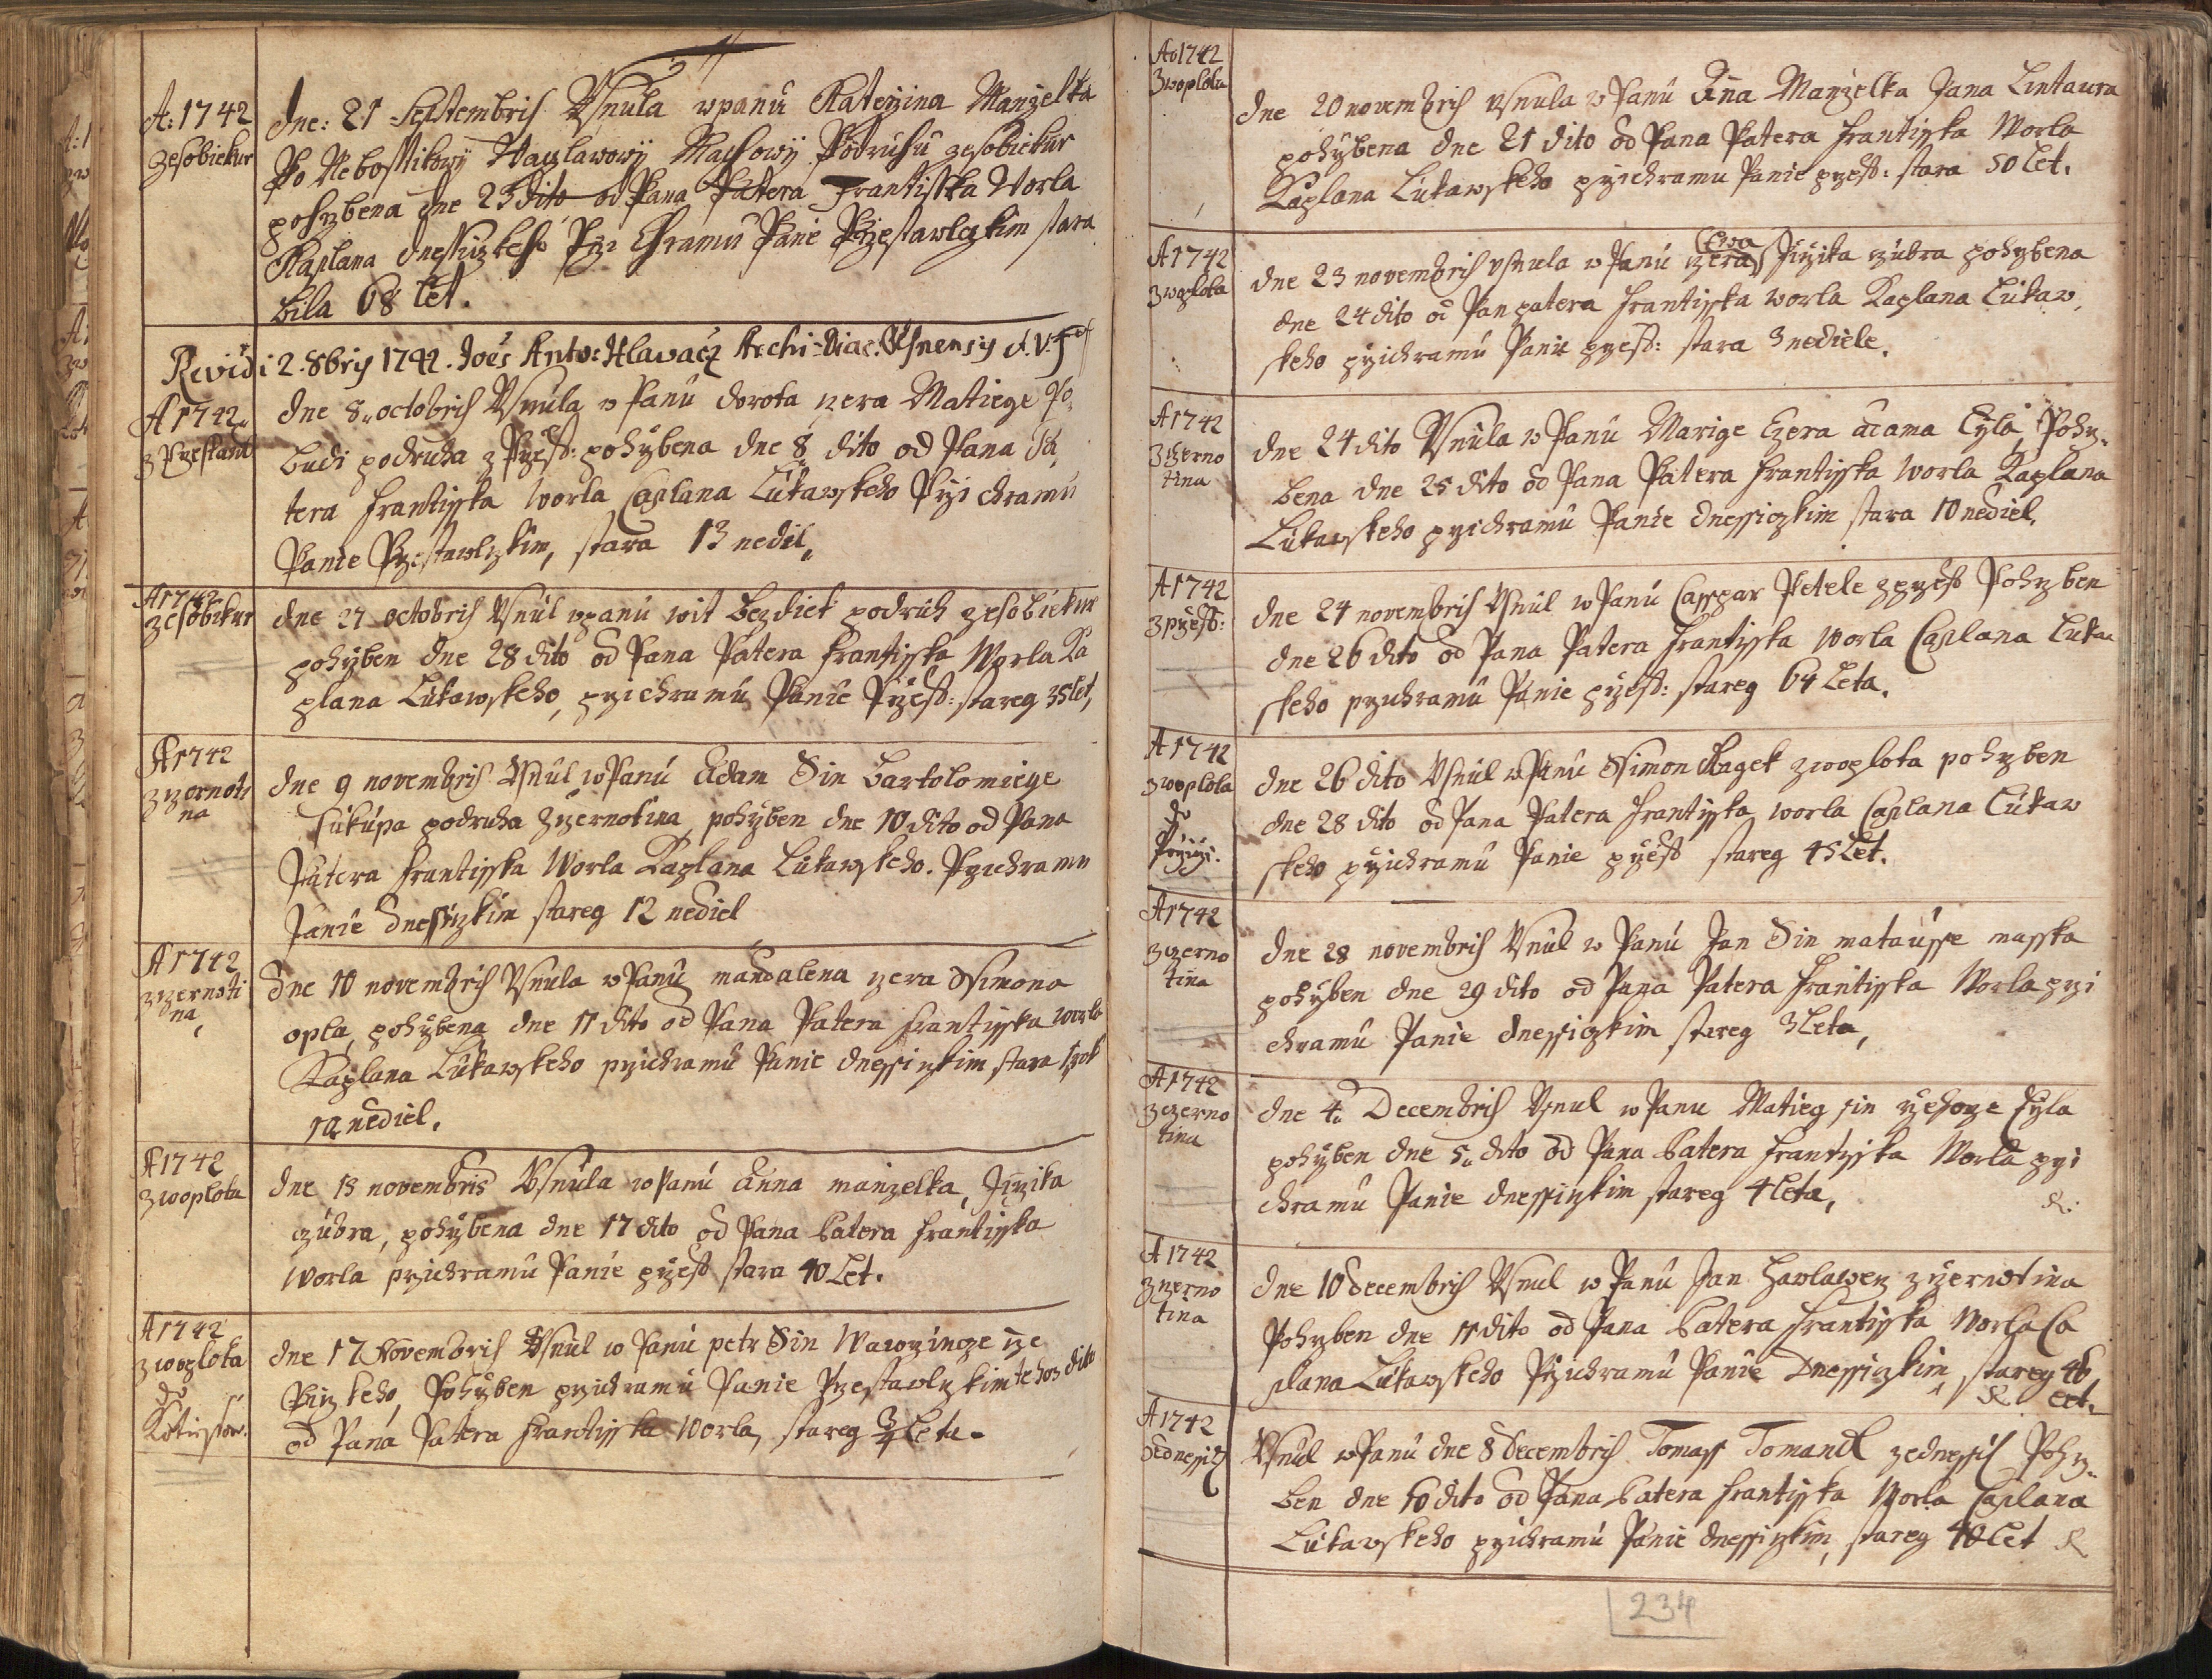 A: 1742
zesobiekur
dne: 21 Septembris Usnula wpanu Kateřina Manzelka
Po Neboſstikowy Waczlawowÿ Podruhu zesobiekur
pohrbena dne 23 dito od Pana Patera Frantiſska Worla
Kaplana dneſsiczkeho Pri Chramu Panie Przestawlczkim stara
bila 68 let.
Revidi 2. 8bris 1742. Joës Anto: Hlawacz Archi-Diac.
A 1742
z Przestawl
dne 8. octobris Usnula w Panu dorota czera Matiege
podruha z Przest: pohrbena dne 8 dito od Pana Pa
tera Frantiſska Worla Caplana Lukawskeho Przi chramu
Panie Przestawlczkim, stara 13 nedil,
A 1742
zesobikur
dne 27 octobris Usnul wpanu wit Bezdiek podruh zesobiekur
pohrben dne 28 dito od Pana Patera Frantiſska Worla Ka
plana Lukawskeho, przichramu Panie Przest: stareg 35 let,
A 1742
z czernoti
na
dne 9 novembris Usnul w Panu Adam Sin Bartolomiege
Sukupa podruha z czernotina pohrben dne 10 dito od Pana
Patera Frantiſska Worla Kaplana Lukawskeho. Przichramu
Panie dneſsiczkim stareg 12 nediel
A 1742
z czernoti
na
dne 10 novembris Usnula w Panu mandalena czera Ssimona
opla, pohrbena dne 11 dito od Pana Patera Frantiſska worla
Kaplana Lukawskeho przichramu Panie dneſsiczkim stara 1 rok
nediel.
A 1742
z woplota
dne 15 novembris Usnula w Panu Anna manzelka, Jirzika
czubra, pohrbena dne 17 dito od Pana Patera Frantiſska
Worla przichramu Panie przest stara 40 Let.
A 1742
z woplota
do
dne 17 Novembris Usnul w Panu petr Sin Wawrzincze rze
Pohrben przichramu Panie Przestawlczkim tehoz dito
od Pana Patera Frantiſska Worla, stareg Leta.
Ao 1742
z woplota
dne 20 novembris usnula w Panu Ana Manzelka Jana Lintaura
pohrbena dne 21 dito od Pana Patera Frantiſska Worla
Kaplana Lukawskeho przichramu Panie przest: stara 50 Let.
A 1742
z woplota
Ewa
dne 23 novembris usnula w Panu czera Jirzika czubra pohrbena
dne 24 dito od Pan patera Frantiſska worla Kaplana Lukaw
skeho przichramu Panie przest: stara 3 nediele.
A 1742
z czerno
tina
dne 24 dito Usnula w Panu Marige Czera adama Cyla, Pohr
bena dne 25 dito od Pana Patera Frantiſska Worla Kaplana
Lukawskeho przichramu Panie dneſsiczkim stara 10 nediel,
A 1742
z przest:
dne 24 novembris Usnul w Panu Caspar Petele z przest Pohrben
dne 26 dito od Pana Patera Frantiſska Worla Caplana Lukaw
skeho przichramu Panie przest: stareg 64 Leta.
A 1742
z woplota
do
dne 26 dito Usnul w Panu Ssimon Hagek z woplota pohrben
dne 28 dito od Pana Patera Frantiſska worla Caplana Lukaw
skeho przichramu Panie przest stareg 45 Let.
A 1742
z czerno
tina
dne 28 novembris Usnul w Panu Jan Sin matauſse maſska
pohrben dne 29 dito od Pana Patera Frantiſska Worla przi
chramu Panie dneſsiczkim stareg 3 Leta,
A 1742
z czerno
tina
dne 4. Decembris Usnul w Panu Matieg sin rzehorze Cyla
pohrben dne 5. dito od Pana Patera Frantiſska Worla przi
chramu Panie dneſsiczkim stareg 4 Leta,
A 1742
z czerno
tina
dne 10 decembris Usnul w Panu Jan Hawlawecz z czernotina
Pohrben dne 11 dito od Pana Patera Frantiſska Worla Ca
plana Lukawskeho Przichramu Panie Dneſsiczkim, stareg 46
Let.
A 1742
zednessicz
Usnul w Panu dne 8 decembris Tomaſs Tomandl zednessic Pohr
ben dne 10 dito od Pana Patera Frantiſska Worla Caplana
Lukawskeho przichramu Panie dneſsiczkim, stareg 40 Let
234